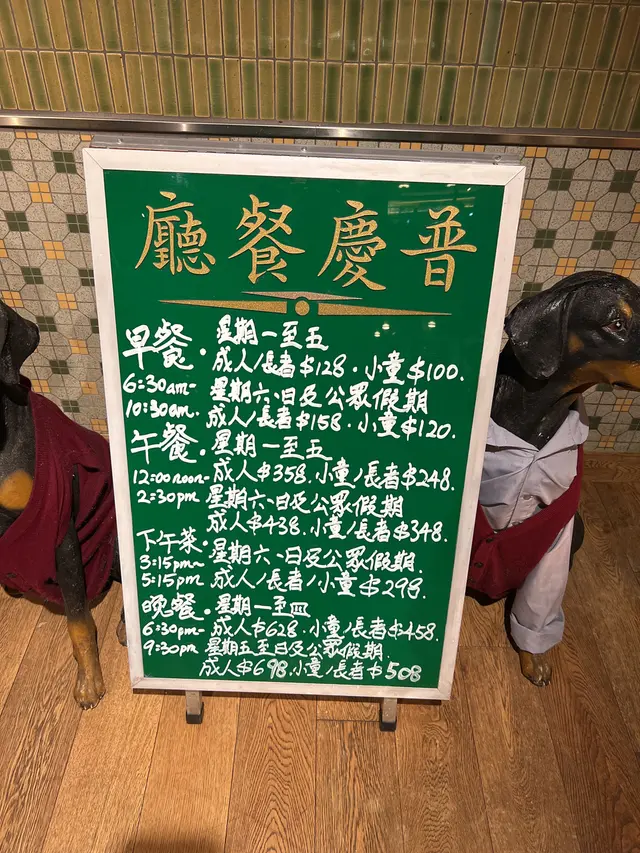 廳餐慶普
早餐. 星期一至五
成人/長者$128.小童$100.
6:30am- 星期六、日及公眾假期
10:30am. 成人/長者$158.小童$120.
午餐. 星期一至五
12:00noon- 成人$358.小童/長者$248.
2:30pm 星期六、日及公眾假期
成人$438.小童/長者$348.
下午茶. 星期六、日及公眾假期.
3:15pm-
5:15pm 成人/長者/小童$298.
晚餐. 星期一至四
6:30pm- 成人$628.小童/長者$458.
9:30pm 星期五至日及公眾假期.
成人$698.小童/長者$508